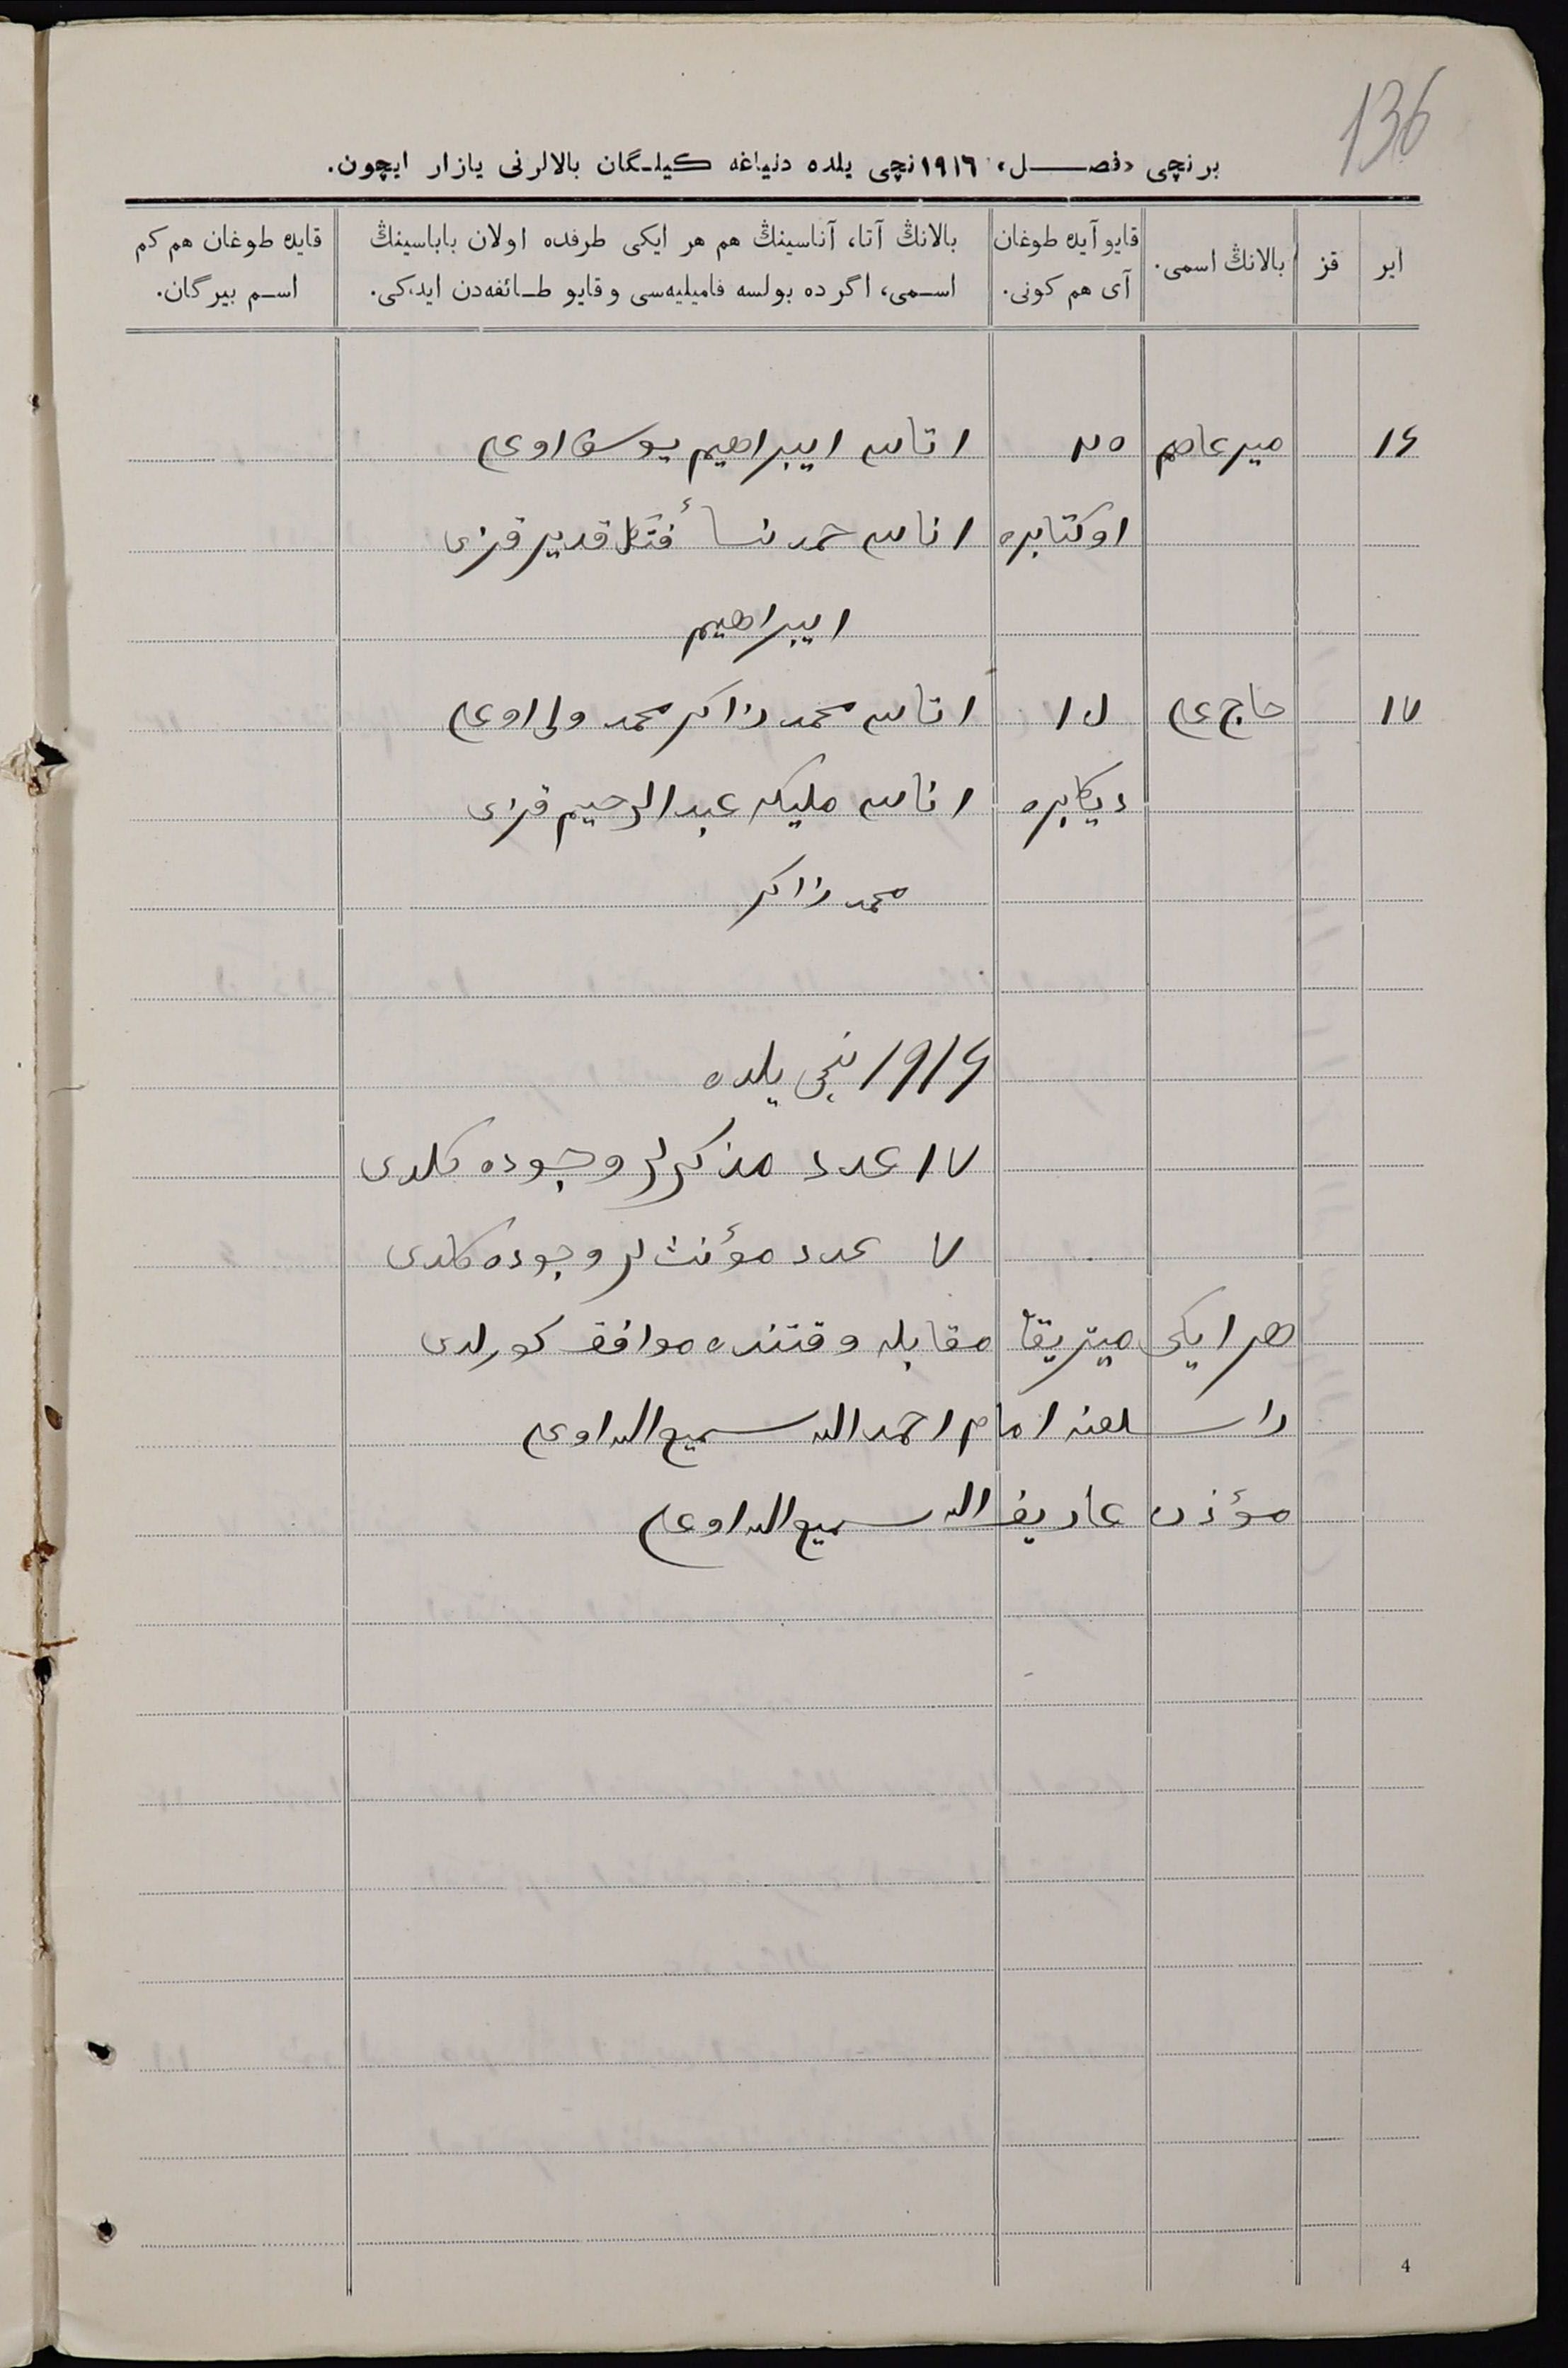 136
برنچی «فصل» ۱۹۱٦نچی یلده دنیاغه کیلگان بالالرنی یازار ایچون.
ایر
قز
بالانڭ اسمی.
قایو آیده طوغان آی هم کونی.
بالانڭ آتا، آناسینڭ هم هر ایکی طرفده اولان باباسینڭ اسمی، اگر ده بولسه فامیلیه‌سی و قایو طائفه‌دن ایدکی.
قایده طوغان هم کم اسم بیرگان.
۱۶ میرعاصم ۲۵ اتاسی ایبراهیم یوسف اوغلی
اوکتابره اناسی حمدنسأ قدیر قزی
ایبراهیم
۱۷ حاج علی اتاسی محمد ذاکر محمد ولی اوغلی
دیکابره اناسی ملیکه عبدالرحیم قزی
محمد ذاکر
۱۹۱۶ نچی یلده
۱۷ عدد مذکرلر وجوده کلدی
۷ عدد مؤنث لر وجوده کلدی
هر ایکی میتریقا مقابله وقتنده موافق کورلدی
امام احمدالله سمیع الله اوغلی
مؤذن عاریف الله سمیع الله اوغلی
4